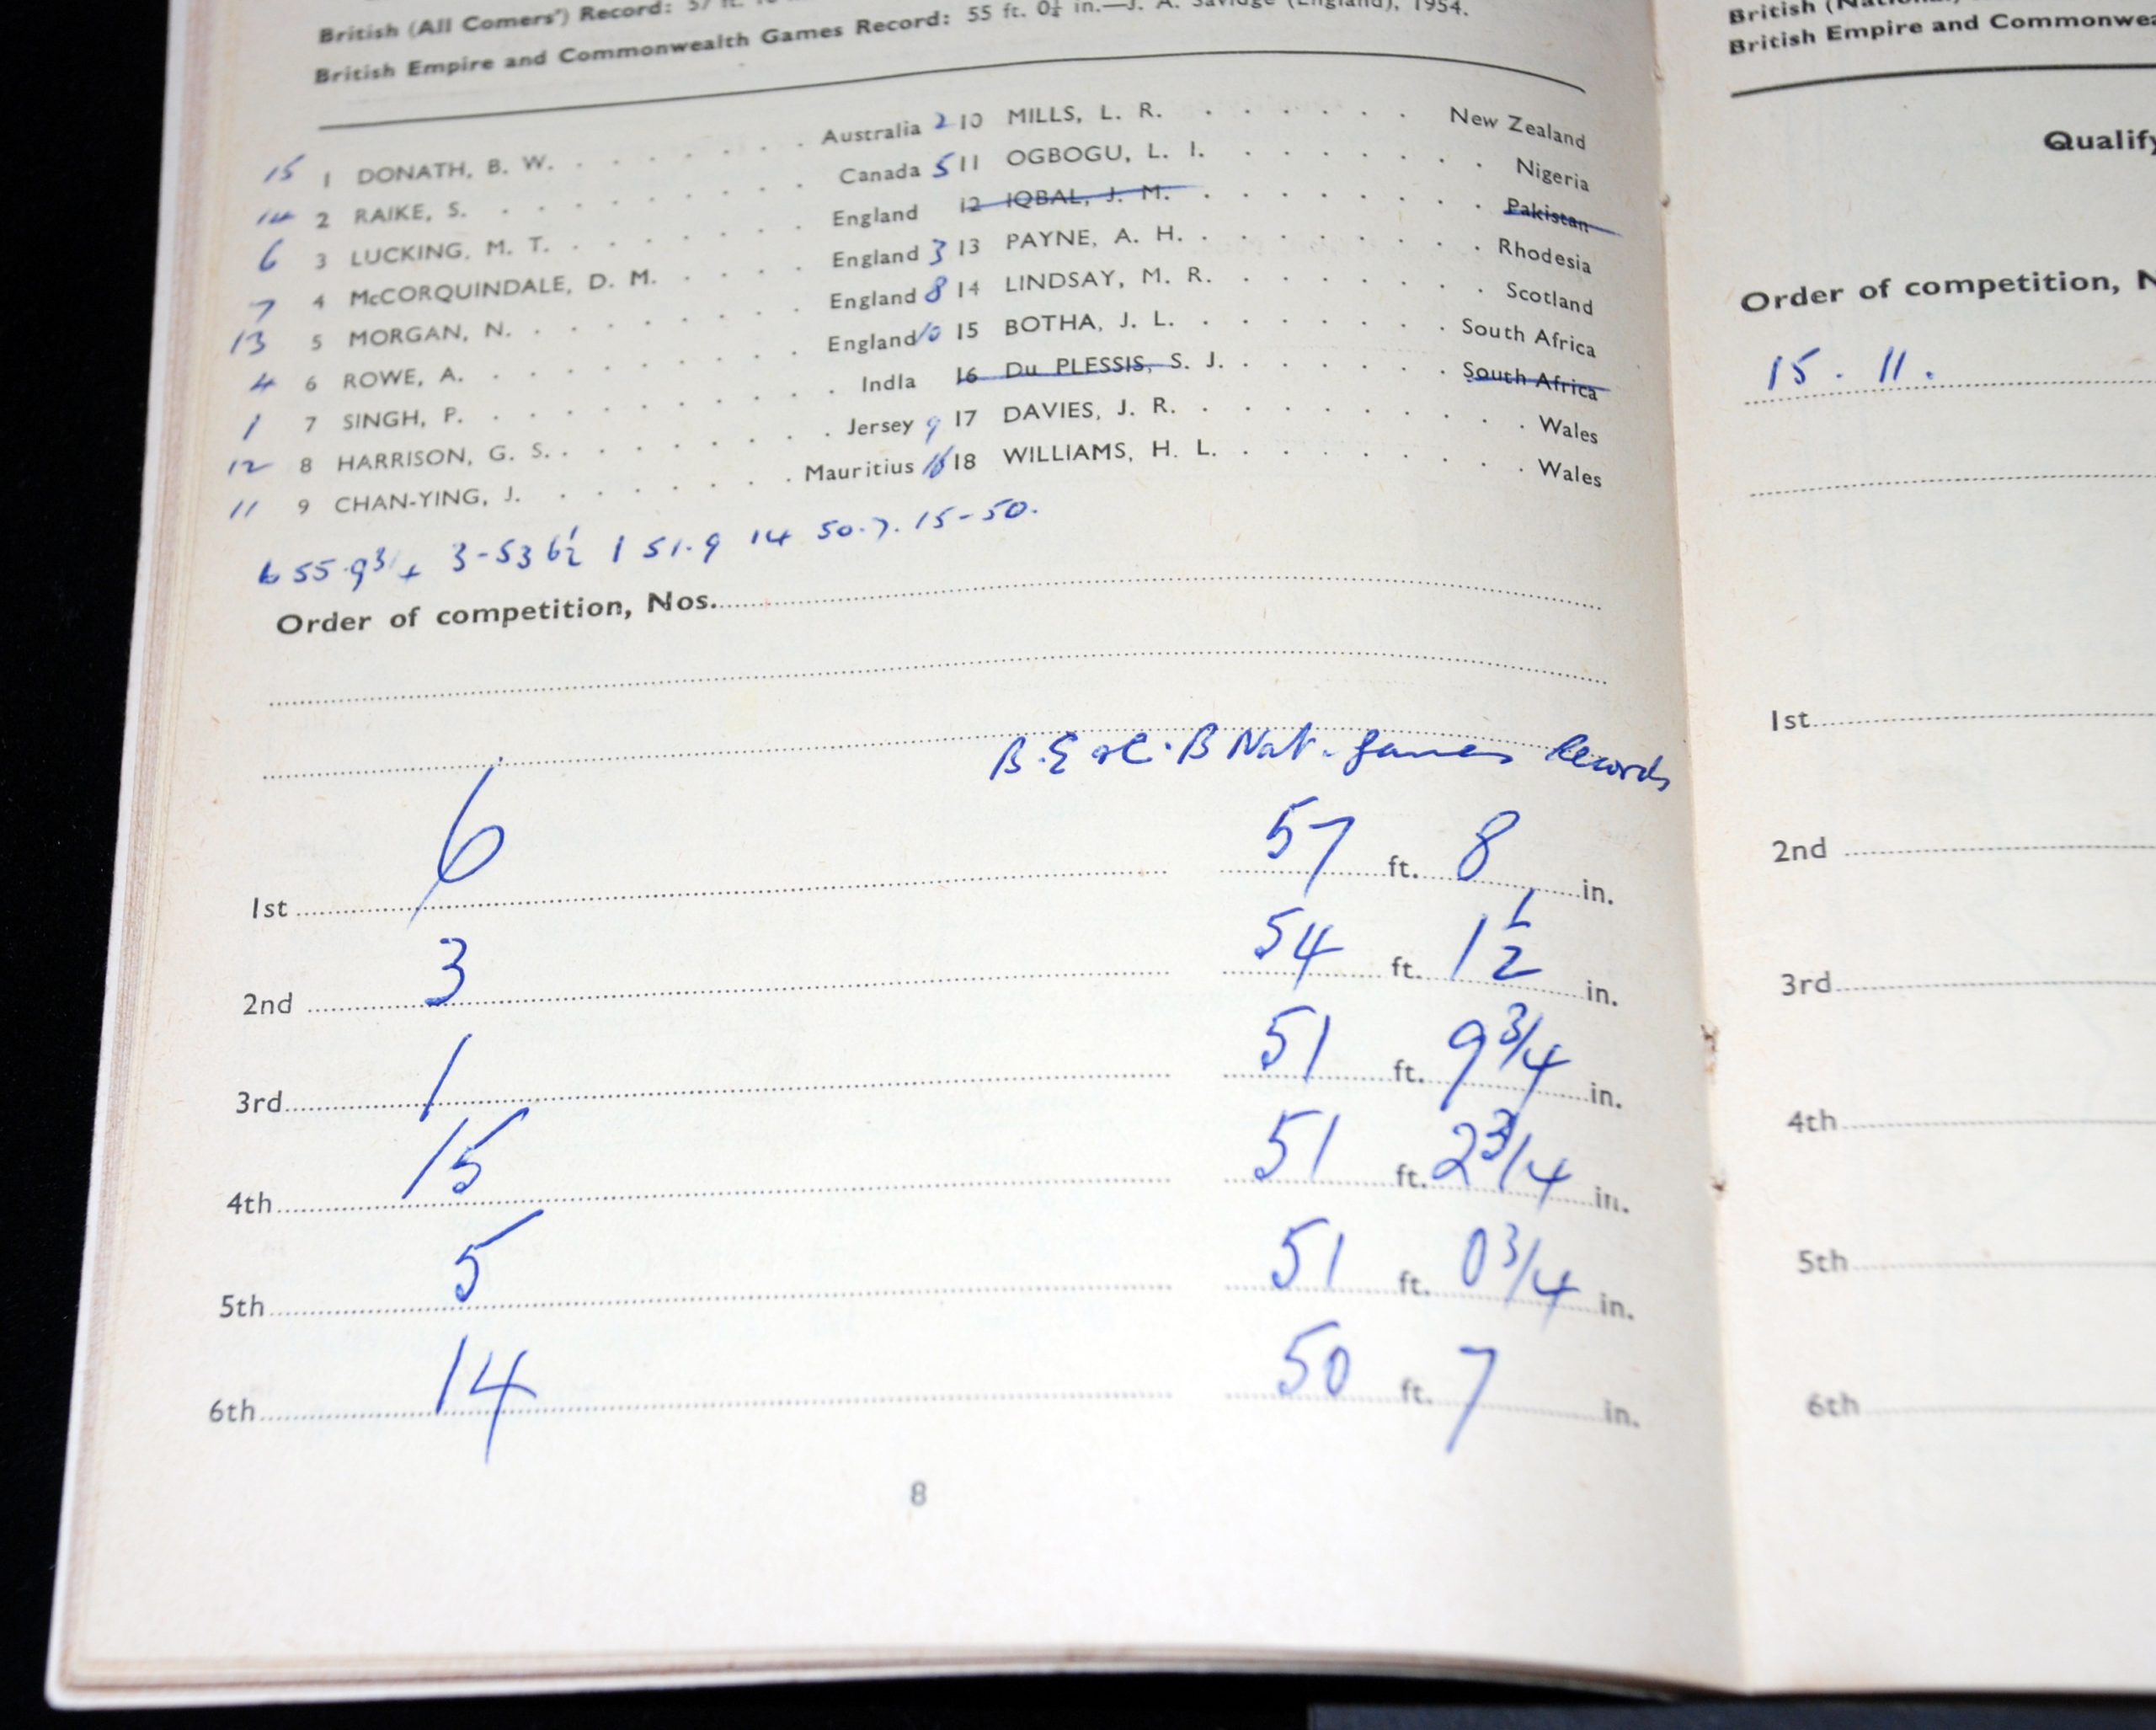 British (All Comers') Record: 57 ft.
British Empire and Commonwealth Games Record: 55 ft. 0¼ in.—J. A. Savidge (England), 1954.
15 1 DONATH, B. W. . . . . . . . Australia
14 2 RAIKE, S. . . . . . . . . Canada
6 3 LUCKING, M. T. . . . . . . . England
7 4 McCORQUINDALE, D. M. . . . . England
13 5 MORGAN, N. . . . . . . . . England
4 6 ROWE, A. . . . . . . . . England
1 7 SINGH, P. . . . . . . . . . India
12 8 HARRISON, G. S. . . . . . . . . Jersey
11 9 CHAN-YING, J. . . . . . . . Mauritius
2 10 MILLS, L. R. . . . . . . New Zealand
5 11 OGBOGU, L. I. . . . . . . . Nigeria
12 IQBAL, J. M. . . . . . . . . Pakistan
3 13 PAYNE, A. H. . . . . . . . . Rhodesia
8 14 LINDSAY, M. R. . . . . . . . Scotland
10 15 BOTHA, J. L. . . . . . . . South Africa
16 Du PLESSIS, S. J. . . . . . . South Africa
9 17 DAVIES, J. R. . . . . . . . . Wales
16 18 WILLIAMS, H. L. . . . . . . . . Wales
6 55.9¾ 3-53 6½ 1 51.9 14 50.7. 15-50.
Order of competition, Nos.
Nat. Games Records
1st 6 57 ft. 8 in.
2nd 3 54 ft. 1½ in.
3rd 1 51 ft. 9¾ in.
4th 15 51 ft. 2¾ in.
5th 5 51 ft. 0¾ in.
6th 14 50 ft. 7 in.
8
British
British Empire and
Qualify
Order of competition, N
15. 11.
1st
2nd
3rd
4th
5th
6th